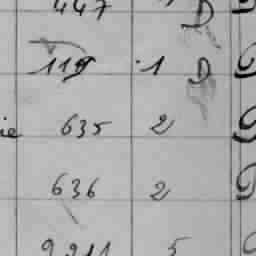 447 D
119 1 D
ie 635 2
636 2
9911 5